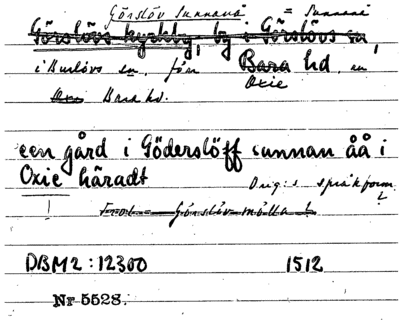 Görslöv Sunnanå = Sunnanå
Görslövs kyrkby, by i Görslövs sn,
i Burlövs sn, förr Bara hd, en
Oxie
Oxie Bara hd.
een gård i Göderslöff sunnan åå i
Oxie häradt
Orig:s språkform?
!
Trol. = Görslöv mölla !
DBM2:12300 1512
Nr 5528.